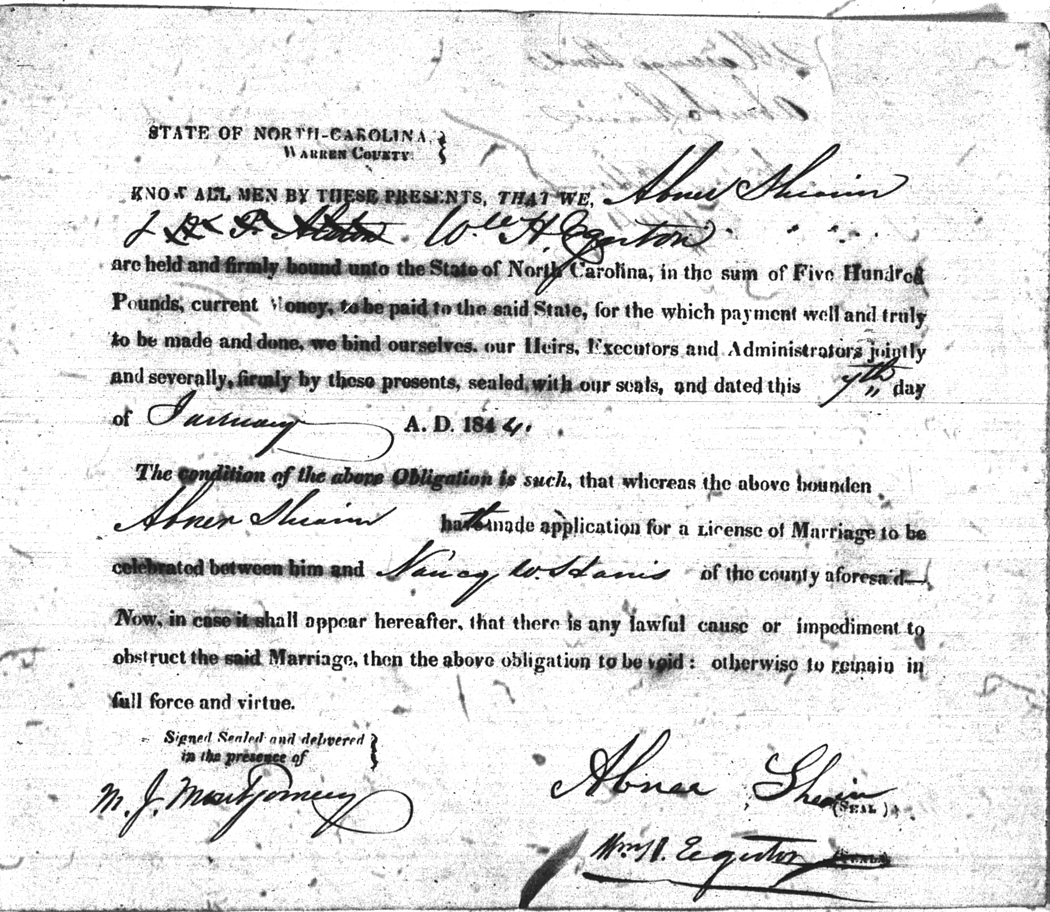 STATE OF NORTH-CAROLINA,
WARREN COUNTY.
KNOW ALL MEN BY THESE PRESENTS, THAT WE, Abner Shearin
Wm H. Egerton
are held and firmly bound unto the State of North Carolina, in the sum of Five Hundred
Pounds, current Money, to be paid to the said State, for the which payment well and truly
to be made and done, we bind ourselves, our Heirs, Executors and Administrators jointly
and severally, firmly by these presents, sealed with our seals, and dated this 9th day
of January A. D. 1844.
The condition of the above Obligation is such, that whereas the above bounden
Abner Shearin hath made application for a License of Marriage to be
celebrated between him and Nancy W. Harris of the county aforesaid
Now, in case it shall appear hereafter, that there is any lawful cause or impediment to
obstruct the said Marriage, then the above obligation to be void: otherwise to remain in
full force and virtue.
Signed Sealed and delivered
in the presence of
M. J. Montgomery
Abner Shearin (SEAL)
Wm H. Egerton